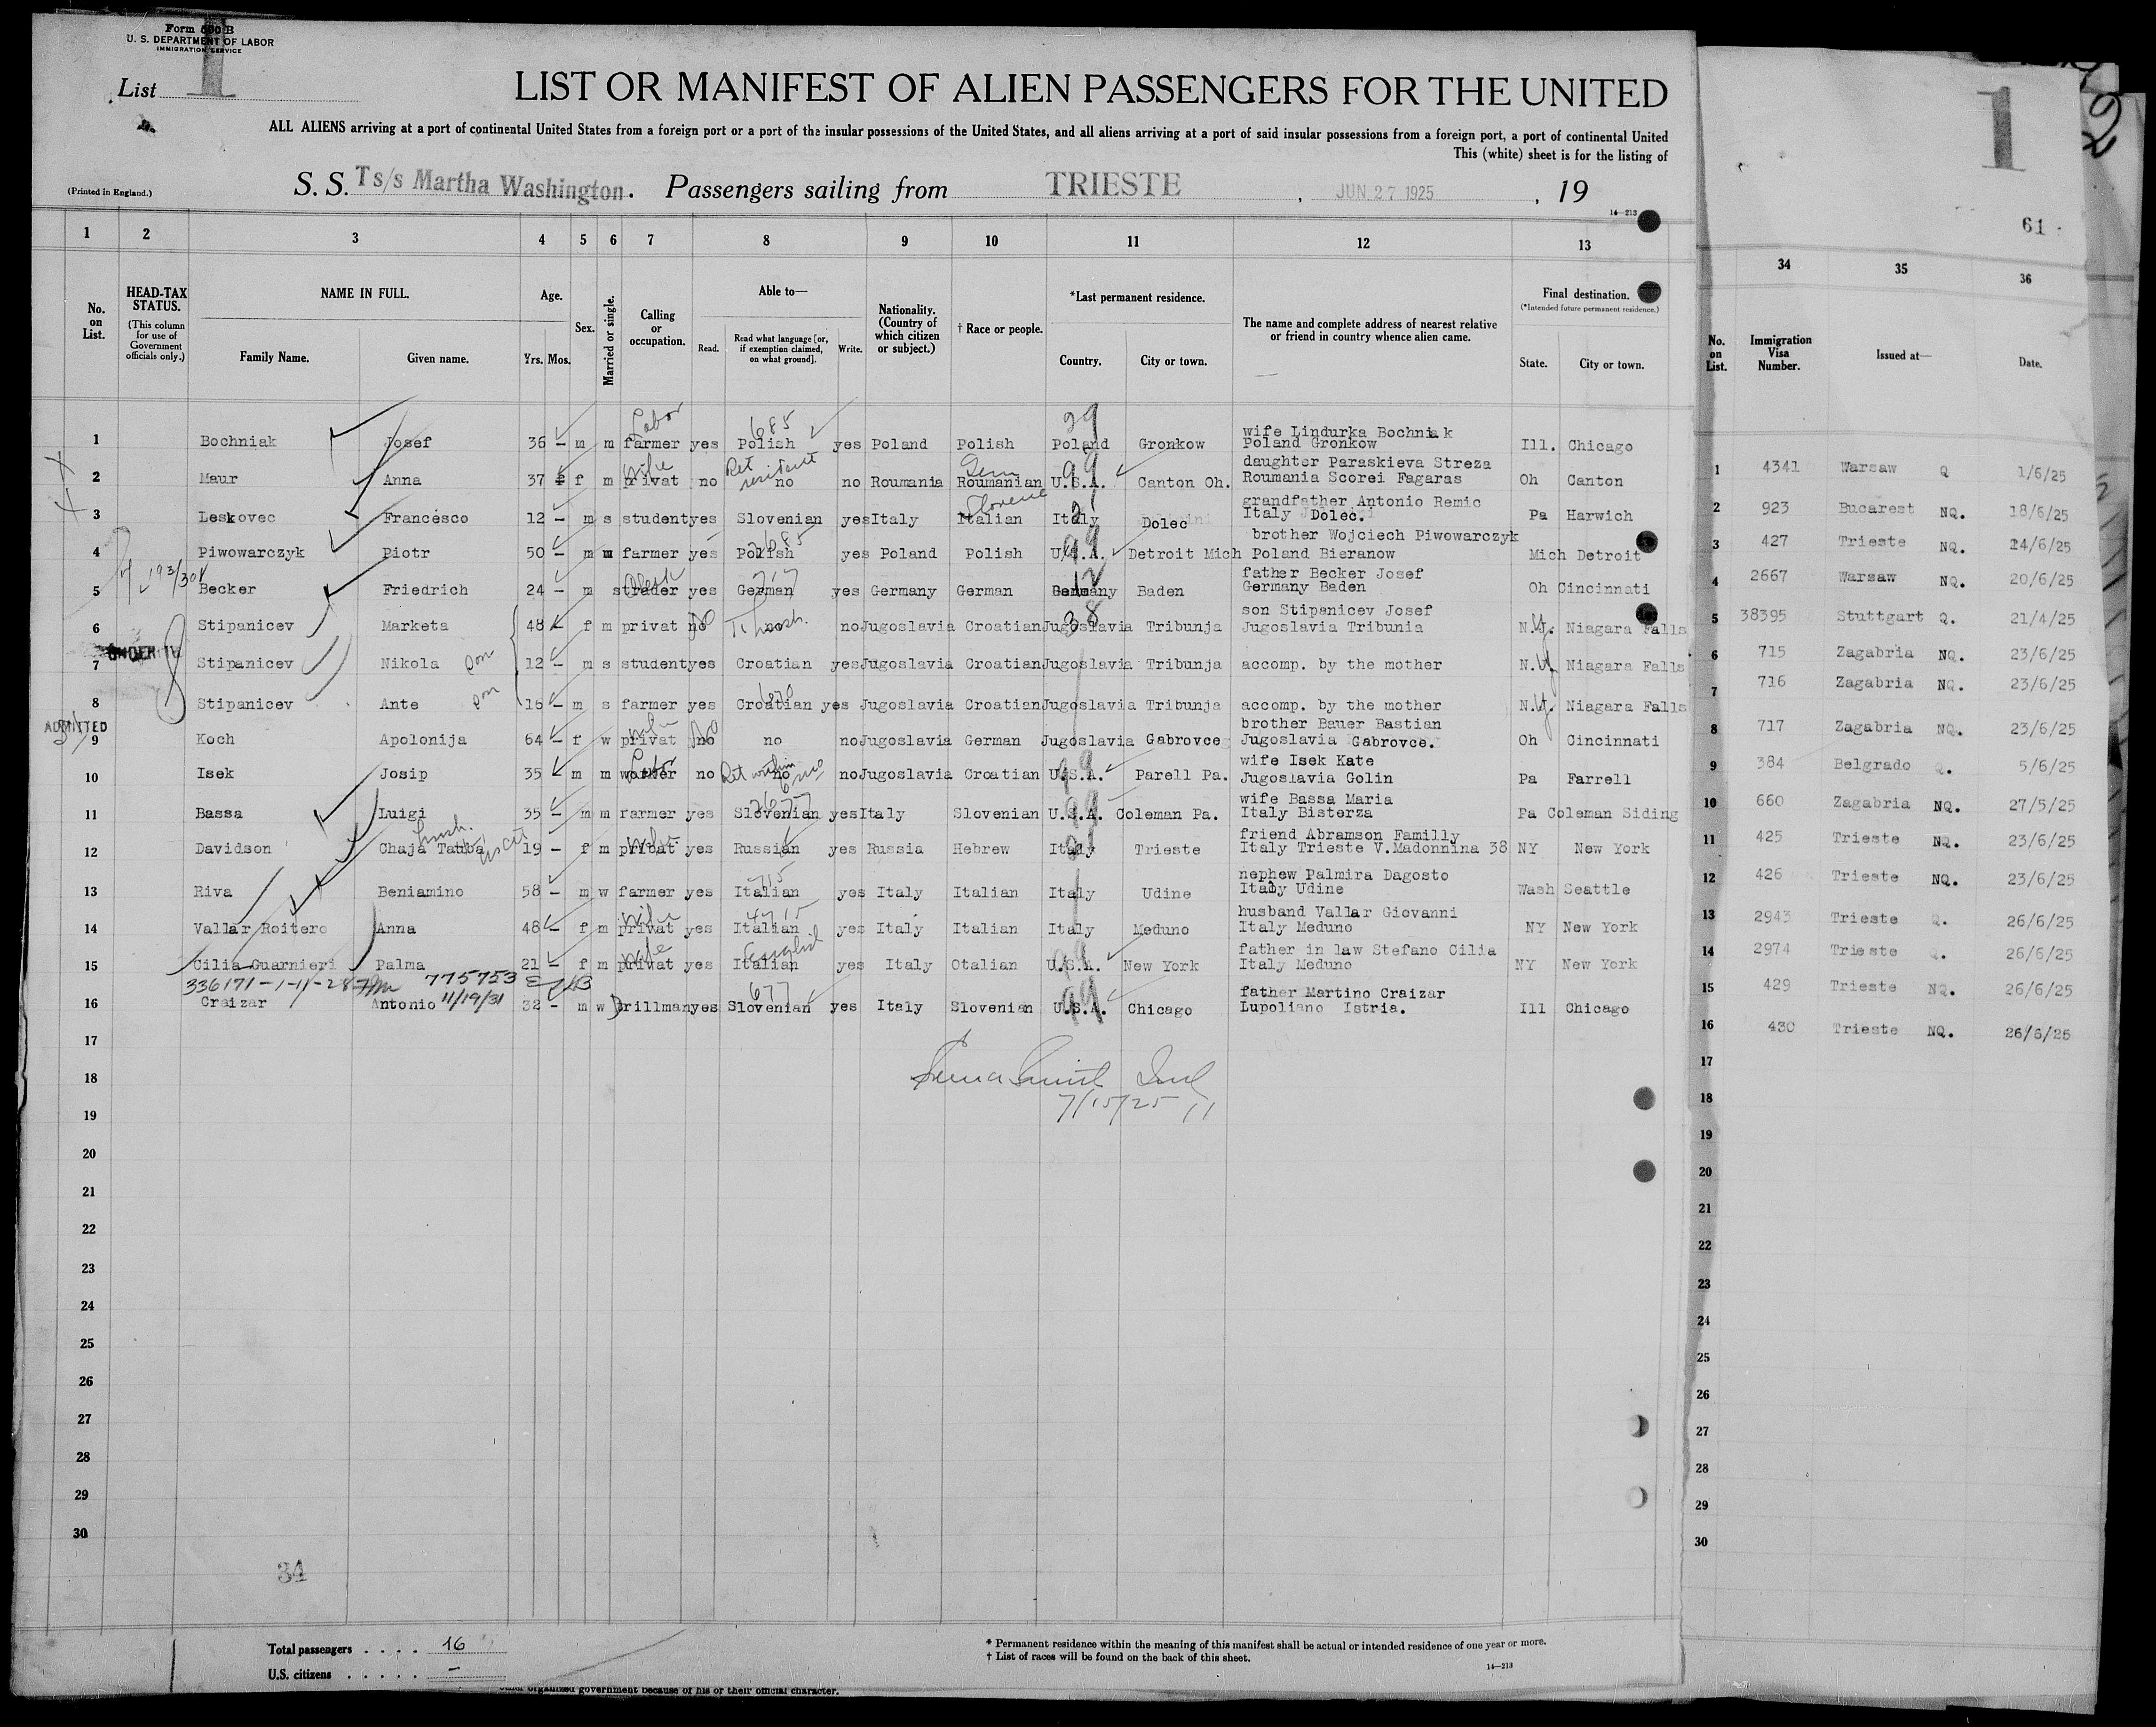 Form 500 B
U. S. DEPARTMENT OF LABOR
IMMIGRATION SERVICE
List 1
LIST OR MANIFEST OF ALIEN PASSENGERS FOR THE UNITED
ALL ALIENS arriving at a port of continental United States from a foreign port or a port of the insular possessions of the United States, and all aliens arriving at a port of said insular possessions from a foreign port, a port of continental United
This (white) sheet is for the listing of
(Printed in England.)
S. S. Ts/s Martha Washington. Passengers sailing from TRIESTE, JUN 27 1925, 19
14—213
1 2 3 4 5 6 7 8 9 10 11 12 13
No. on List.
HEAD-TAX STATUS.
(This column for use of Government officials only.)
NAME IN FULL.
Family Name. Given name.
Age.
Yrs. Mos.
Sex.
Married or single.
Calling or occupation.
Able to—
Read. Read what language [or, if exemption claimed, on what ground]. Write.
Nationality. (Country of which citizen or subject.)
† Race or people.
*Last permanent residence.
Country. City or town.
The name and complete address of nearest relative or friend in country whence alien came.
Final destination.
(*Intended future permanent residence.)
State. City or town.
1 Bochniak Josef 36 – m m farmer Labor yes Polish 685 yes Poland Polish Poland 29 Gronkow wife Lindurka Bochniak Poland Gronkow Ill. Chicago
2 Maur Anna 37 – f m privat wife no no Ret resident no Roumania Roumanian Germ U.S.A. 99 Canton Oh. daughter Paraskieva Streza Roumania Scorei Fagaras Oh Canton
3 Leskovec Francesco 12 – m s student yes Slovenian yes Italy Italian Italy 21 Dolec grandfather Antonio Remic Italy Dolec. Pa Harwich
4 Piwowarczyk Piotr 50 – m m farmer yes Polish yes Poland Polish U.S.A. 99 Detroit Mich brother Wojciech Piwowarczyk Poland Bieranow Mich Detroit
5 Becker Friedrich 24 – m s trader yes German 717 yes Germany German Germany 12 Baden father Becker Josef Germany Baden Oh Cincinnati
6 Stipanicev Marketa 48 – f m privat no no no Jugoslavia Croatian Jugoslavia 38 Tribunja son Stipanicev Josef Jugoslavia Tribunia N.Y. Niagara Falls
UNDER 16
7 Stipanicev Nikola son 12 – m s student yes Croatian yes Jugoslavia Croatian Jugoslavia Tribunja accomp. by the mother N.Y. Niagara Falls
8 Stipanicev Ante son 16 – m s farmer yes Croatian yes Jugoslavia Croatian Jugoslavia Tribunja accomp. by the mother N.Y. Niagara Falls
ADMITTED
9 Koch Apolonija 64 – f w privat no no no Jugoslavia German Jugoslavia Gabrovce brother Bauer Bastian Jugoslavia Gabrovce. Oh Cincinnati
10 Isek Josip 35 – m m worker Labor no no Ret within 6 mo no Jugoslavia Croatian U.S.A. 99 Parell Pa. wife Isek Kate Jugoslavia Golin Pa Farrell
11 Bassa Luigi 35 – m m farmer yes Slovenian yes Italy Slovenian U.S.A. 99 Coleman Pa. wife Bassa Maria Italy Bisterza Pa Coleman Siding
12 Davidson Chaja Tauba 19 – f m privat wife yes Russian yes Russia Hebrew Italy 21 Trieste friend Abramson Familly Italy Trieste V.Madonnina 38 NY New York
13 Riva Beniamino 58 – m w farmer yes Italian 715 yes Italy Italian Italy Udine nephew Palmira Dagosto Italy Udine Wash Seattle
14 Vallar Roitero Anna 48 – f m privat wife yes Italian 4715 yes Italy Italian Italy Meduno husband Vallar Giovanni Italy Meduno NY New York
15 Cilia Guarnieri Palma 21 – f m privat wife yes Italian English yes Italy Otalian U.S.A. 99 New York father in law Stefano Cilia Italy Meduno NY New York
336171-1-11-28 775753
16 Craizar Antonio 11/19/31 32 – m w Drillman yes Slovenian 677 yes Italy Slovenian U.S.A. 99 Chicago father Martino Craizar Lupoliano Istria. Ill Chicago
17
18
7/15/25
19
20
21
22
23
24
25
26
27
28
29
30
34
Total passengers . . . . 16
U.S. citizens . . . . . –
* Permanent residence within the meaning of this manifest shall be actual or intended residence of one year or more.
† List of races will be found on the back of this sheet.
14—213
other organized government because of his or their official character.
1
2
61
34 35 36
No. on List. Immigration Visa Number. Issued at— Date.
1 4341 Warsaw Q 1/6/25
2 923 Bucarest NQ. 18/6/25
3 427 Trieste NQ. 24/6/25
4 2667 Warsaw NQ. 20/6/25
5 38395 Stuttgart Q. 21/4/25
6 715 Zagabria NQ. 23/6/25
7 716 Zagabria NQ. 23/6/25
8 717 Zagabria NQ. 23/6/25
9 384 Belgrado Q. 5/6/25
10 660 Zagabria NQ. 27/5/25
11 425 Trieste NQ. 23/6/25
12 426 Trieste NQ. 23/6/25
13 2943 Trieste Q. 26/6/25
14 2974 Trieste Q. 26/6/25
15 429 Trieste NQ. 26/6/25
16 430 Trieste NQ. 26/6/25
17
18
19
20
21
22
23
24
25
26
27
28
29
30